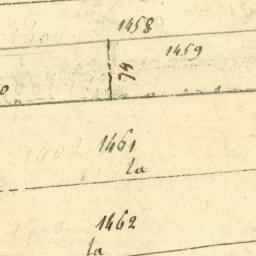 1458
1459
74
0
1461
la
1462
la